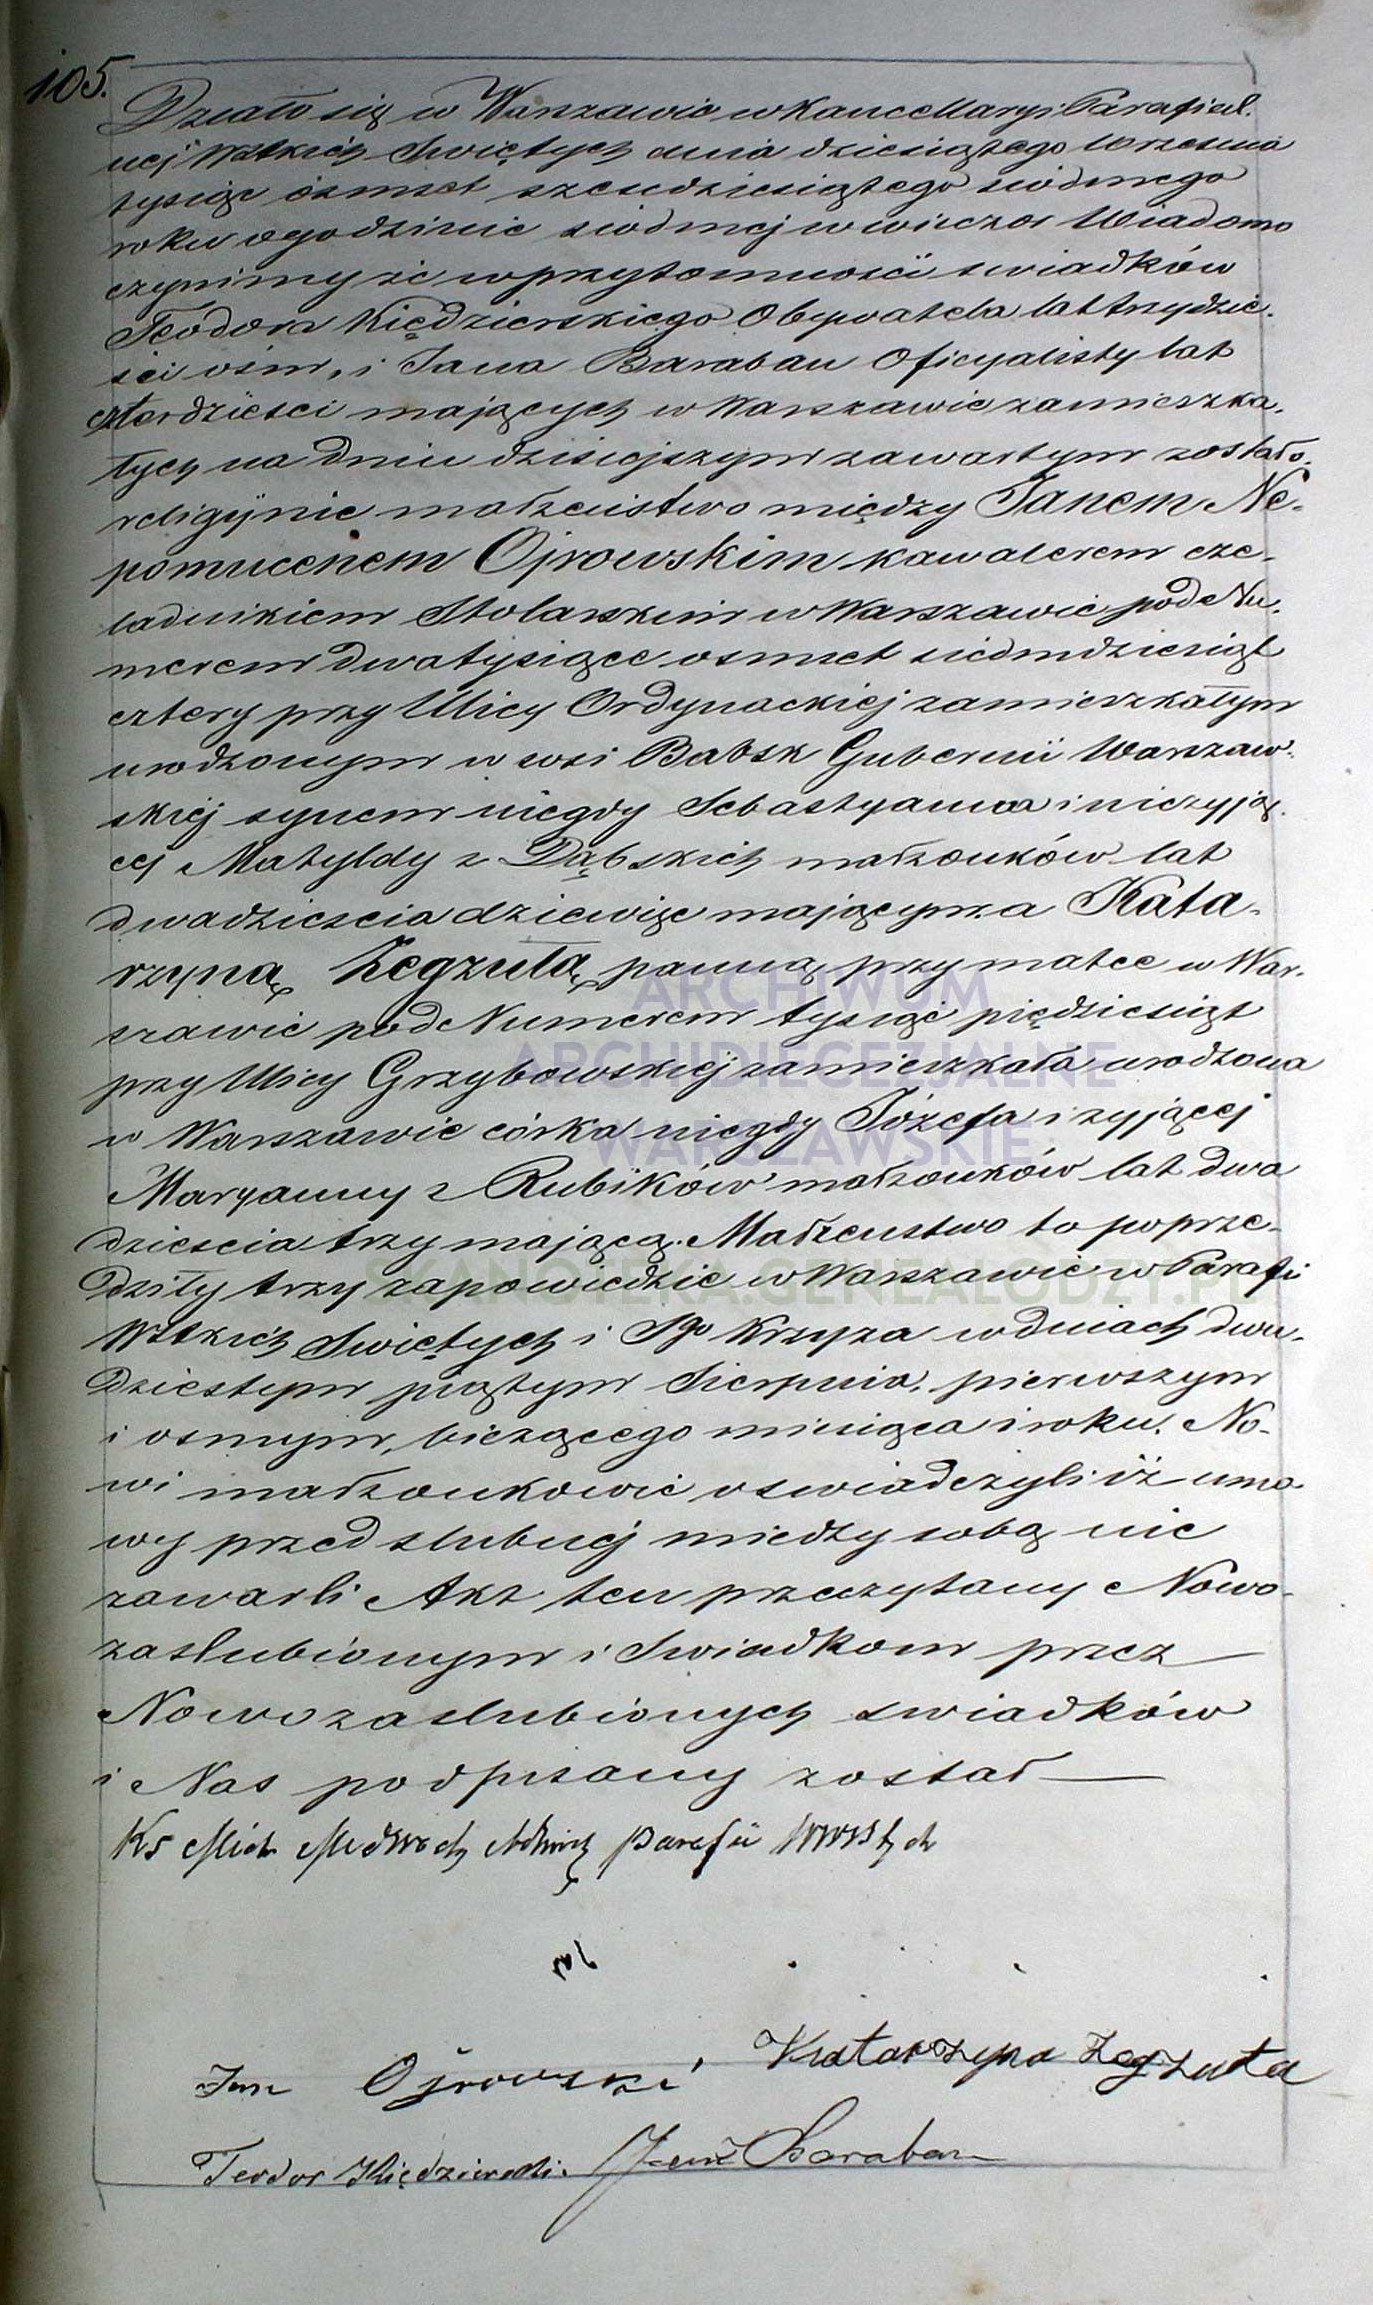 105.
Działo się w Warszawie w Kancellaryi Parafial.
nej Wstkich Swiętych dnia dziesiątego Wrzesnia
tysiąc osmset szesdziesiątego siodmego
roku o godzinie siodmej wwieczor Wiadomo
czynimy że w przytomnosci swiadków
Teodora Kiędzierskiego Obywatela lat trzydzie.
sci osm, i Jana Baraban Oficyalisty lat
czterdziesci mających w Warszawie zamieszka.
łych na dniu dzisiejszym zawartym zostało
religijnie małżeństwo między Janem Ne.
pomucenem Ojrowskim kawalerem cze-
ladnikiem Stolarskim w Warszawie pod Nu.
merem dwatysiące osmset siedmdziesiąt
cztery przy Ulicy Ordynackiej zamieszkałym
urodzonym w wsi Babsk Gubernii Warszaw.
skiej synem niegdy Sebastyana i
cej Matyldy z Dąbskich małżonków lat
dwadziescia dziewięc mającym a Kata-
rzyną Zegzułą panną przy matce w War.
szawie pod Numerem tysiąc piędziesiąt
przy Ulicy Grzybowskiej zamieszkała urodzona
w Warszawie córka niegdy Józefa i zyjącej
Maryanny z Rubików małżonków lat dwa
dziescia trzy mającą. Małżenstwo to poprze-
dziły trzy zapowiedzie w Warszawie w Parafi
Wstkich Swiętych i Sgo Krzyża w dniach dwu-
dziestym piątym Sierpnia, pierwszym
i osmym, bieżącego miesiąca i roku. No-
wi małżonkowie oswiadczyli iż umo
wy przed slubnej miedzy sobą nie
zawarli Akt ten przeczytany Nowo-
zaslubionym i Swiadkom przez
Nowozaslubionych swiadków
i Nas podpisany został
Ks Mich Parafii
Jan Ojrowski Katarzyna Zegzuła
Teodor Kiędzierski. Jan Baraban
ARCHIWUM
ARCHIDIECEZJALNE
WARSZAWSKIE
SKANOTEKA.GENEALODZY.PL